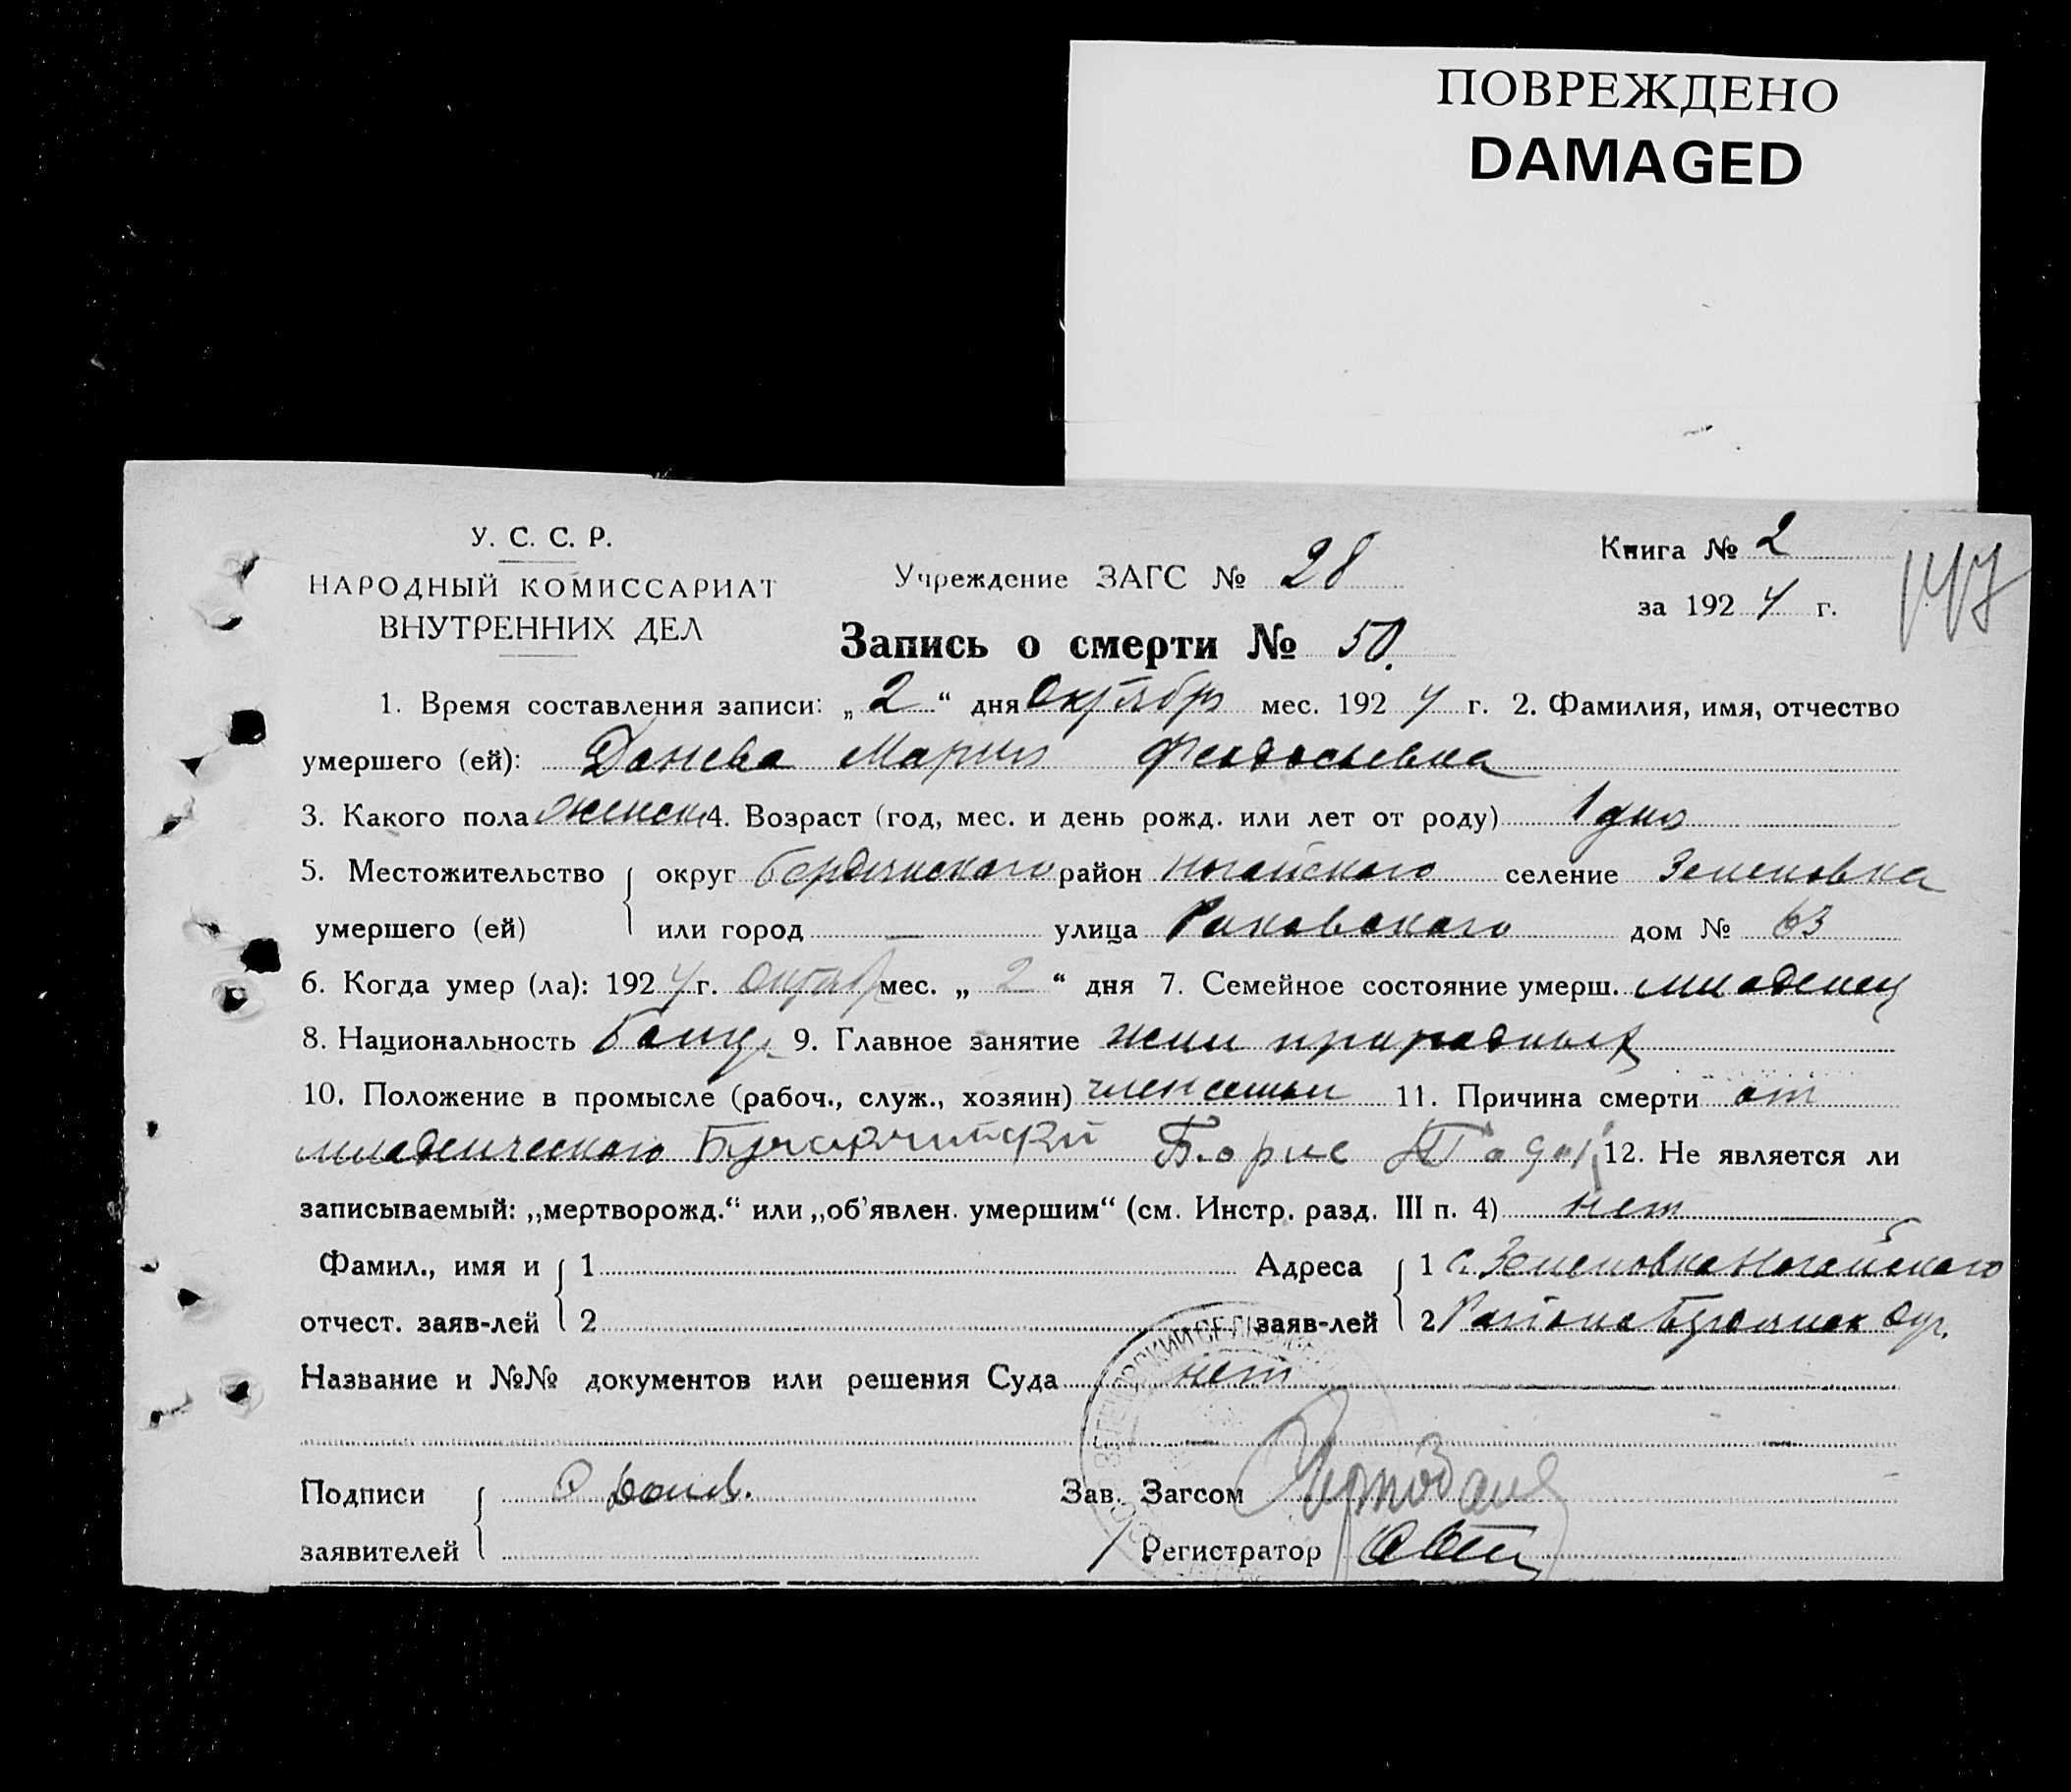 ПОВРЕЖДЕНО
DAMAGED
У. С. С. Р.
НАРОДНЫЙ КОМИССАРИАТ
ВНУТРЕННИХ ДЕЛ
Учреждение ЗАГС № 28
Книга № 2
за 1924 г.
147
Запись о смерти № 50.
1. Время составления записи: „2“ дня Октябр мес. 1924 г. 2. Фамилия, имя, отчество
умершего (ей): Донева Мария Феодосьевна
3. Какого пола женск 4. Возраст (год, мес. и день рожд. или лет от роду) 1 дня
5. Местожительство округ Бердянского район Ногайского селение Зеленовка
умершего (ей) или город — улица Раковского дом № 63
6. Когда умер (ла): 1924 г. октябр мес. „2“ дня 7. Семейное состояние умерш. младенец
8. Национальность 9. Главное занятие
10. Положение в промысле (рабоч., служ., хозяин) член семьи 11. Причина смерти от
младенческого Борис 12. Не является ли
записываемый: „мертворожд.“ или „об’явлен. умершим“ (см. Инстр. разд. III п. 4) нет
Фамил., имя и 1 Адреса 1 с. Зеленовка Ногайского
отчест. заяв-лей 2 заяв-лей 2 Района Окр.
Название и №№ документов или решения Суда нет
Подписи Зав. Загсом
заявителей Регистратор